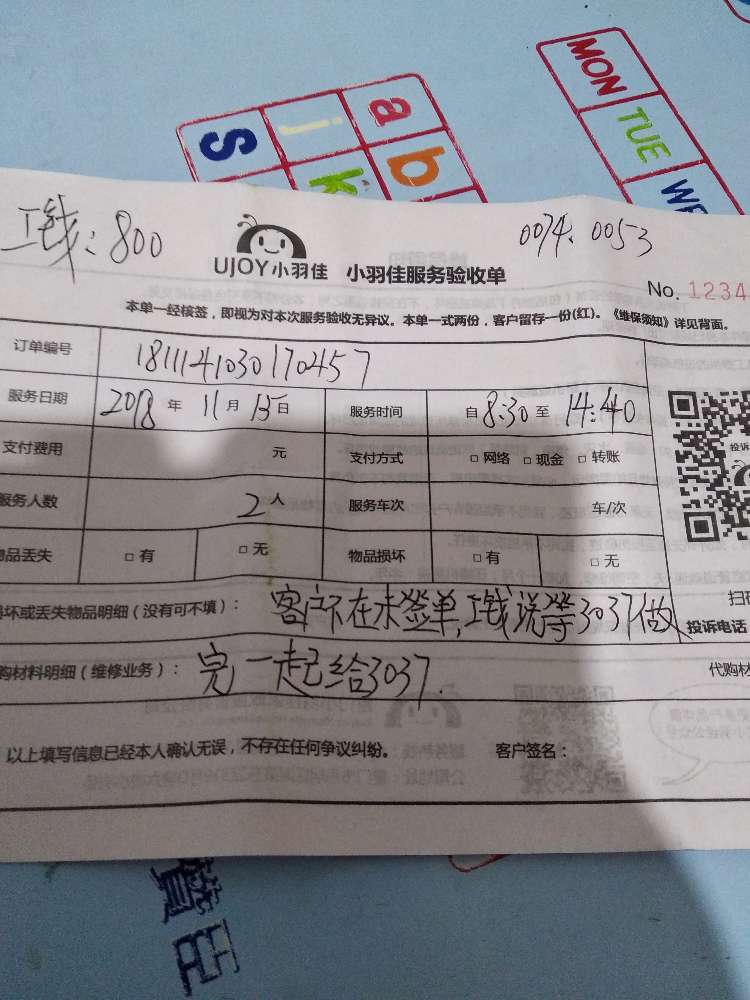 MON
a
TUE
S
j
b
k
WE
工钱：800
0074、0053
UJOY小羽佳 小羽佳服务验收单
No. 1234
本单一经核签，即视为对本次服务验收无异议。本单一式两份，客户留存一份(红)。《维保须知》详见背面。
订单编号 1811141030170457
服务日期 2018年 11月 15日 服务时间 自8:30至14:40
支付费用 元 支付方式 □网络 □现金 □转账
服务人数 2人 服务车次 车/次
物品丢失 □有 □无 物品损坏 □有 □无
损坏或丢失物品明细（没有可不填）： 客户不在未签单，工钱说等3037做
投诉
扫码
投诉电话
购材料明细（维修业务）： 完一起给3037.
代购材
以上填写信息已经本人确认无误，不存在任何争议纠纷。 客户签名：